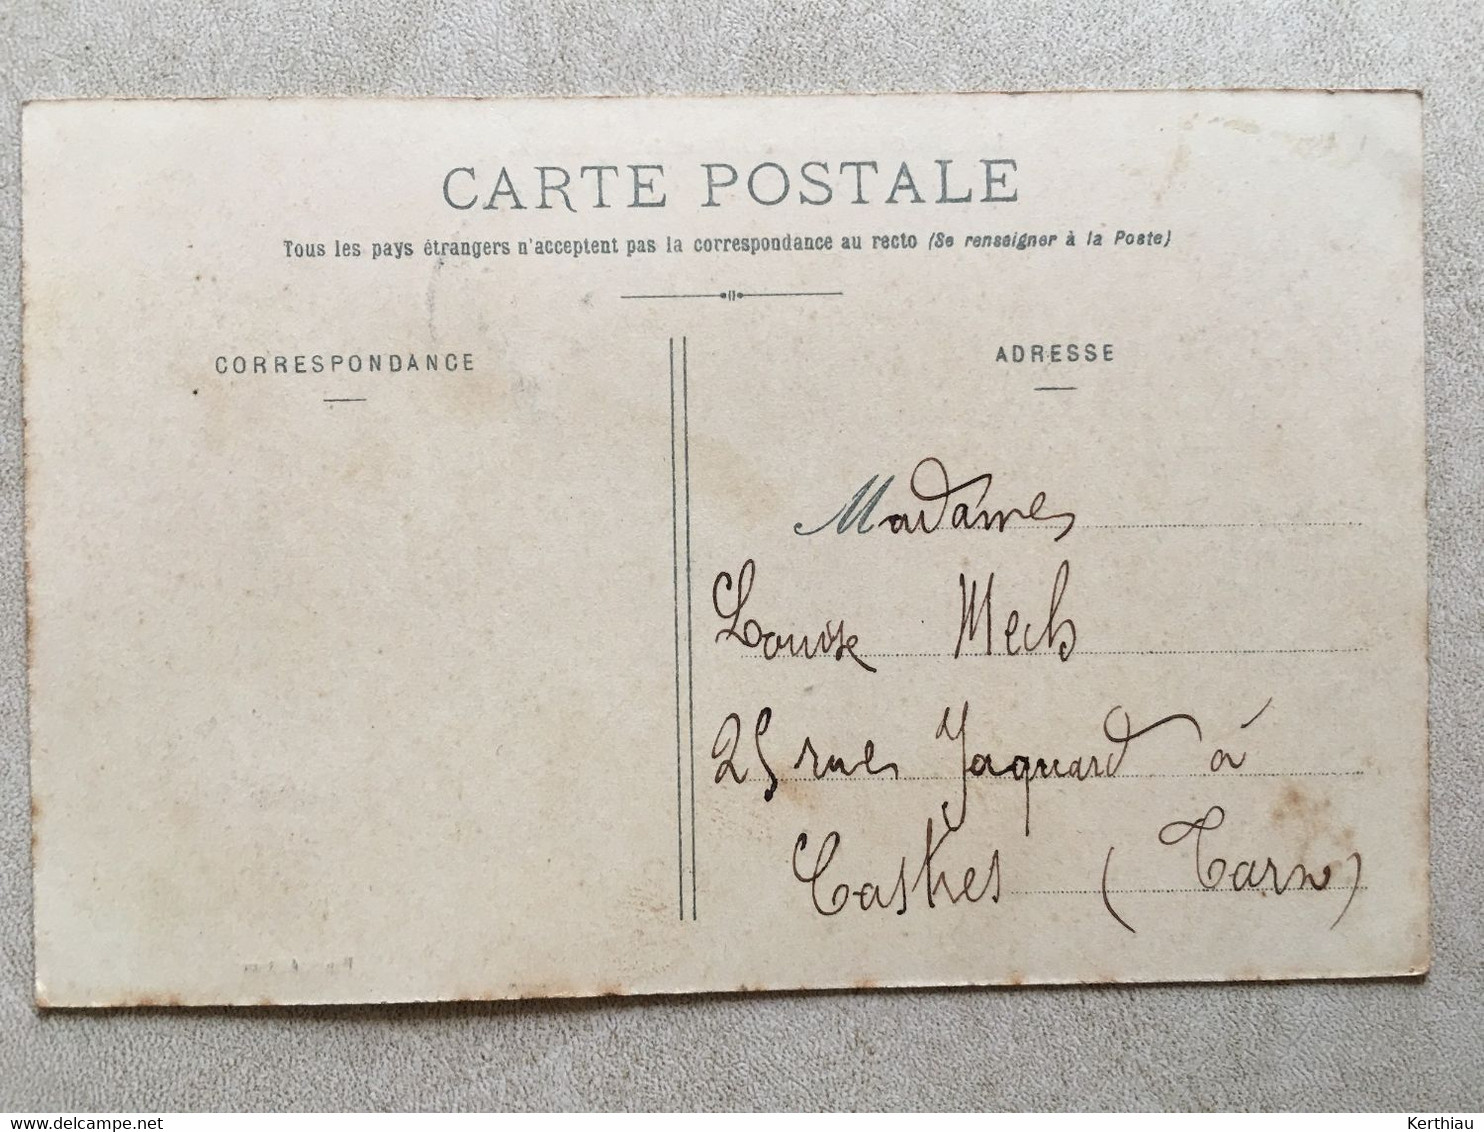 CARTE POSTALE
Tous les pays étrangers n'acceptent pas la correspondance au recto (Se renseigner à la Poste)
CORRESPONDANCE
ADRESSE
Madame
Louise Mech
25 rue Jaquard à
Castres (Tarn)
Kerthiau